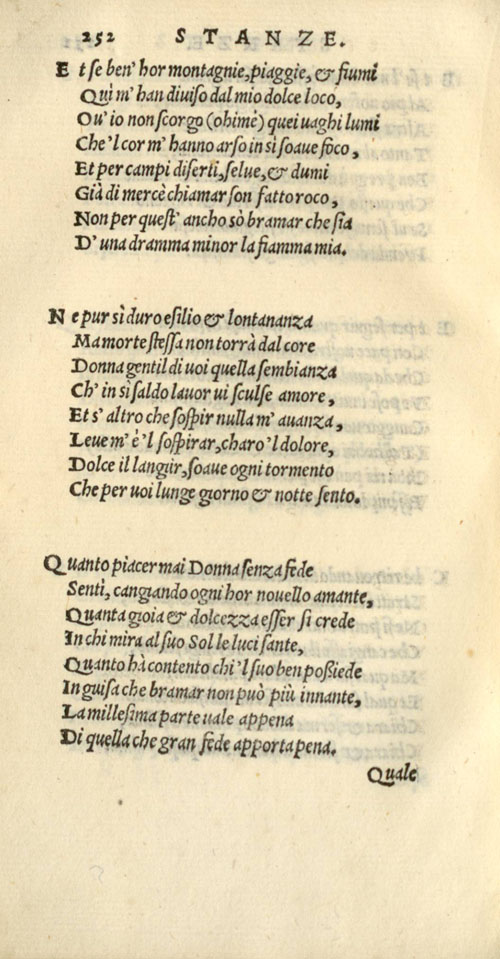 252 STANZE.
E t se ben' hor montagnie, piaggie, & fiumi
Quì m' han diuiso dal mio dolce loco,
Ou' io non scorgo (ohimè) quei uaghi lumi
Che 'l cor m' hanno arso in sì soaue foco,
Et per campi diserti, selue, & dumi
Già di mercè chiamar son fatto roco,
Non per quest' ancho sò bramar che sia
D' una dramma minor la fiamma mia.
N e pur sì duro esilio & lontananza
Ma morte stessa non torrà dal core
Donna gentil di uoi quella sembianza
Ch' in sì saldo lauor ui sculse amore,
Et s' altro che sospir nulla m' auanza,
Leue m' è 'l sospirar, charo 'l dolore,
Dolce il languir, soaue ogni tormento
Che per uoi lunge giorno & notte sento.
Quanto piacer mai Donna senza fede
Sentì, cangiando ogni hor nouello amante,
Quanta gioia & dolcezza esser si crede
In chi mira al suo Sol le luci sante,
Quanto hà contento chi 'l suo ben possiede
In guisa che bramar non può più innante,
La millesima parte uale appena
Di quella che gran fede apporta pena.
Quale